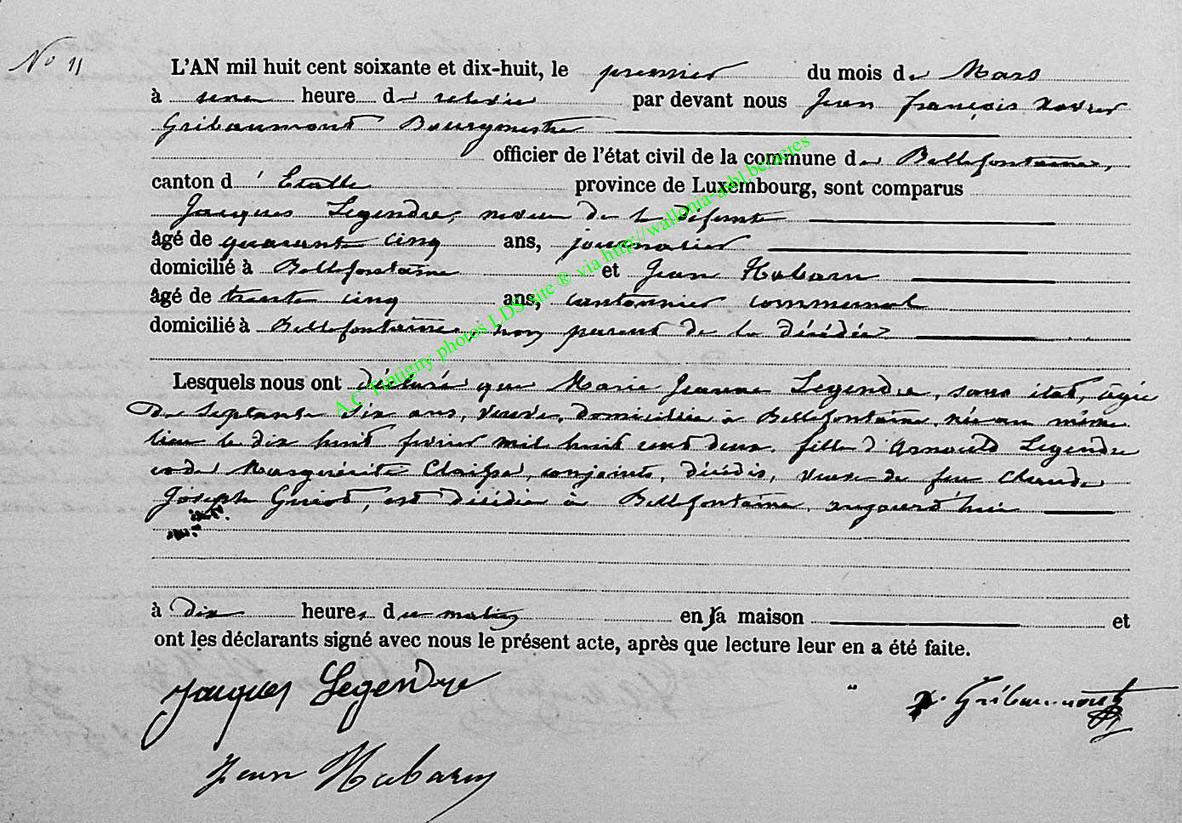 No 11
L'AN mil huit cent soixante et dix-huit, le premier du mois de Mars
à une heure de relevée par devant nous Jean François Xavier
Gribaumont Bourgmestre
officier de l'état civil de la commune de Bellefontaine,
canton d'Etalle province de Luxembourg, sont comparus
Jacques Legendre, neveu de la défunte
âgé de quarante cinq ans, journalier
domicilié à Bellefontaine et Jean Habaru
âgé de trente cinq ans, cantonnier communal
domicilié à Bellefontaine, non parent de la décédée
Lesquels nous ont déclaré que Marie Jeanne Legendre, sans état, âgée
de septante six ans, veuve, domiciliée à Bellefontaine, née au même
lieu le dix huit février mil huit cent deux, fille d'Arnould Legendre
et de Marguérite Claisse, conjoints, décédés, veuve de feu Claude
Joseph Guiot, est décédée à Bellefontaine, aujourd'hui
à dix heures du matin en sa maison et
ont les déclarants signé avec nous le présent acte, après que lecture leur en a été faite.
Jacques Legendre
Gribaumont
Jean Habaru
A.C Tintigny photos LDS site ® via http://wallonia-asbl.be/actes